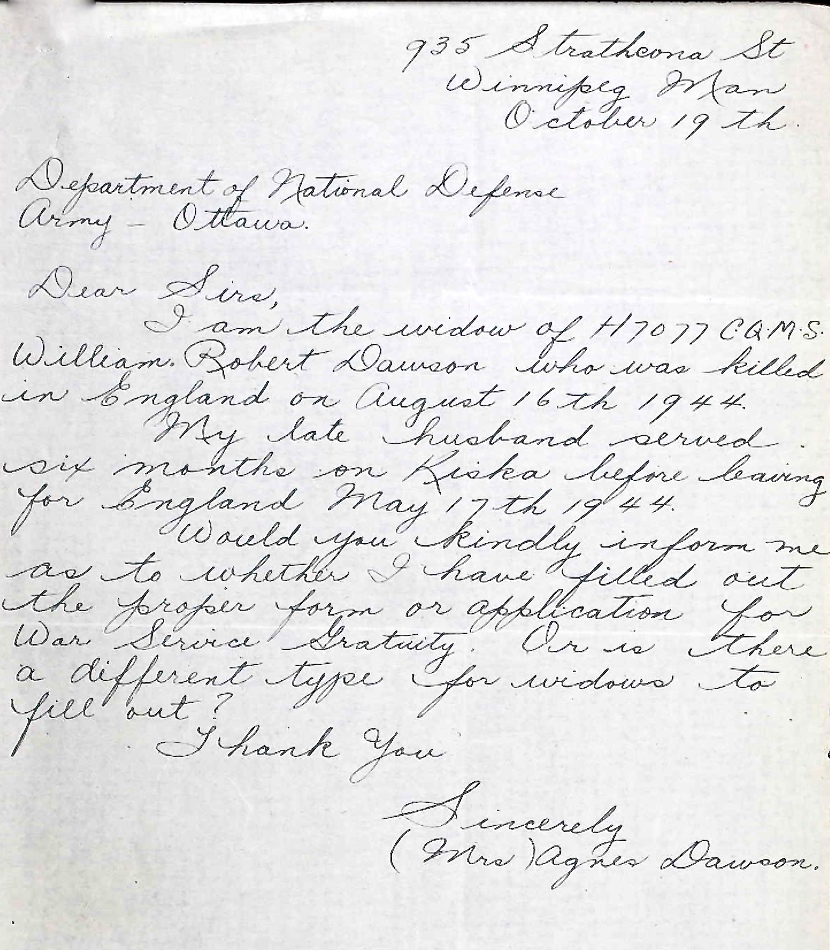 935 Strathcona St
Winnipeg Man
October 19th.
Department of National Defense
Army - Ottawa.
Dear Sirs,
I am the widow of H7077 C.Q.M.S.
William. Robert Dawson who was killed
in England on August 16th 1944.
My late husband served.
six months on Kiska before leaving
for England May 17th 1944.
Would you kindly inform me
as to whether I have filled out
the proper form or application for
War Service Gratuity. Or is there
a different type for widows to
fill out?
Thank You
Sincerely
(Mrs) Agnes Dawson.